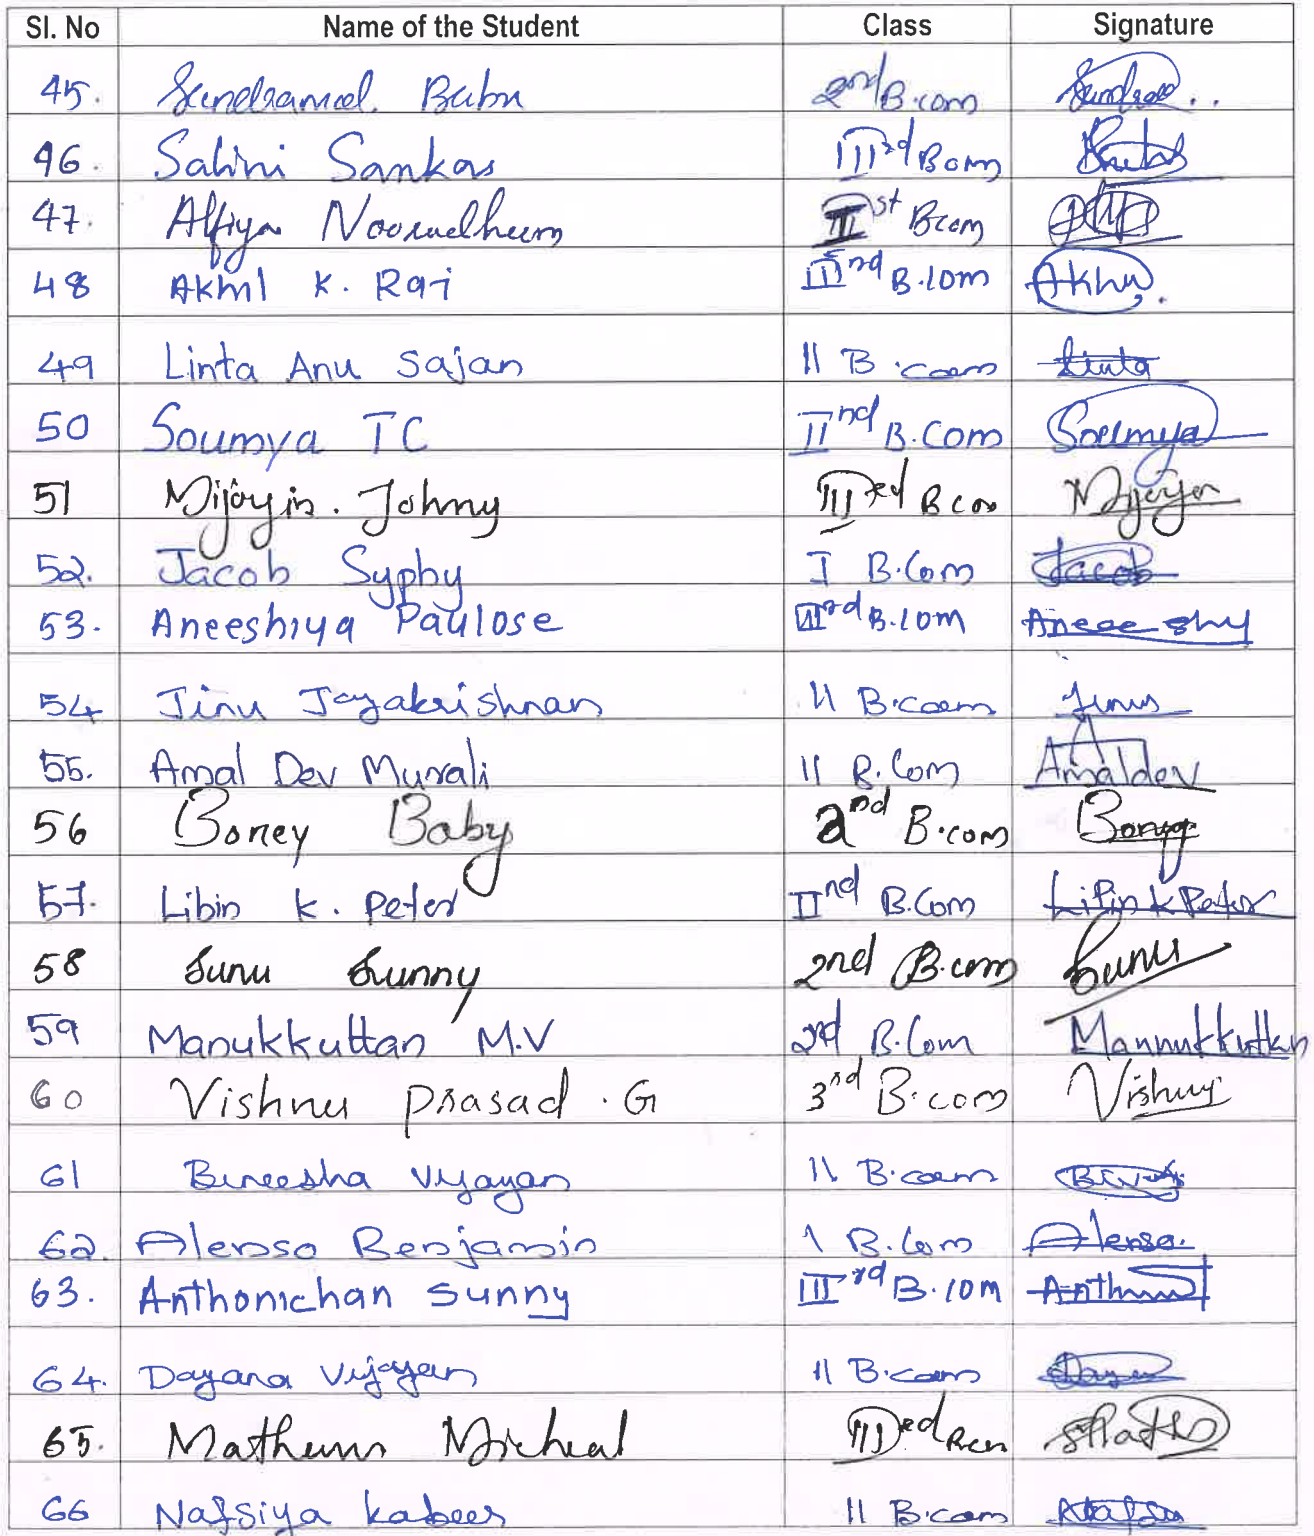 Sl. No Name of the Student Class Signature
45. Sandramol. Babu 2nd B.com Sandra..
46. Salini Sankar IIIrd Bcom
47. Alfiya Noorudheen st Bcom
48 Akhil K. Raj IIIrd B.Com Akhil.
49 Linta Anu Sajan II B.com Linta
50 Soumya TC IInd B.Com Soumya
51 Mijoyin. Johny IIIed Bcom Mijoyin
52. Jacob Sypby I B.Com Jacob
53. Aneeshiya Paulose IIIrd B.Com Aneeshy
54 Jinu Jayakrishnan II B.com Jinu
55. Amal Dev Murali II B.Com Amaldev
56 Boney Baby 2nd B.com Boney
57. Libin K. Peter IInd B.Com Libin K Peter
58 Sunu Sunny 2nd B.com Sunu
59 Manukkuttan M.V 2nd B.Com Mannukkuttan
60 Vishnu Prasad . G 3rd B.com Vishnu
61 Bineesha Vijayan II B.com
62. Alenso Benjamin I B.Com Alenso.
63. Anthonichan Sunny IIIrd B.Com
64. Dayana Vijayan II B.com Dayana
65. Mathews Micheal IIIed Bcom
66 Nafsiya Kabeer II B.com Nafsiya